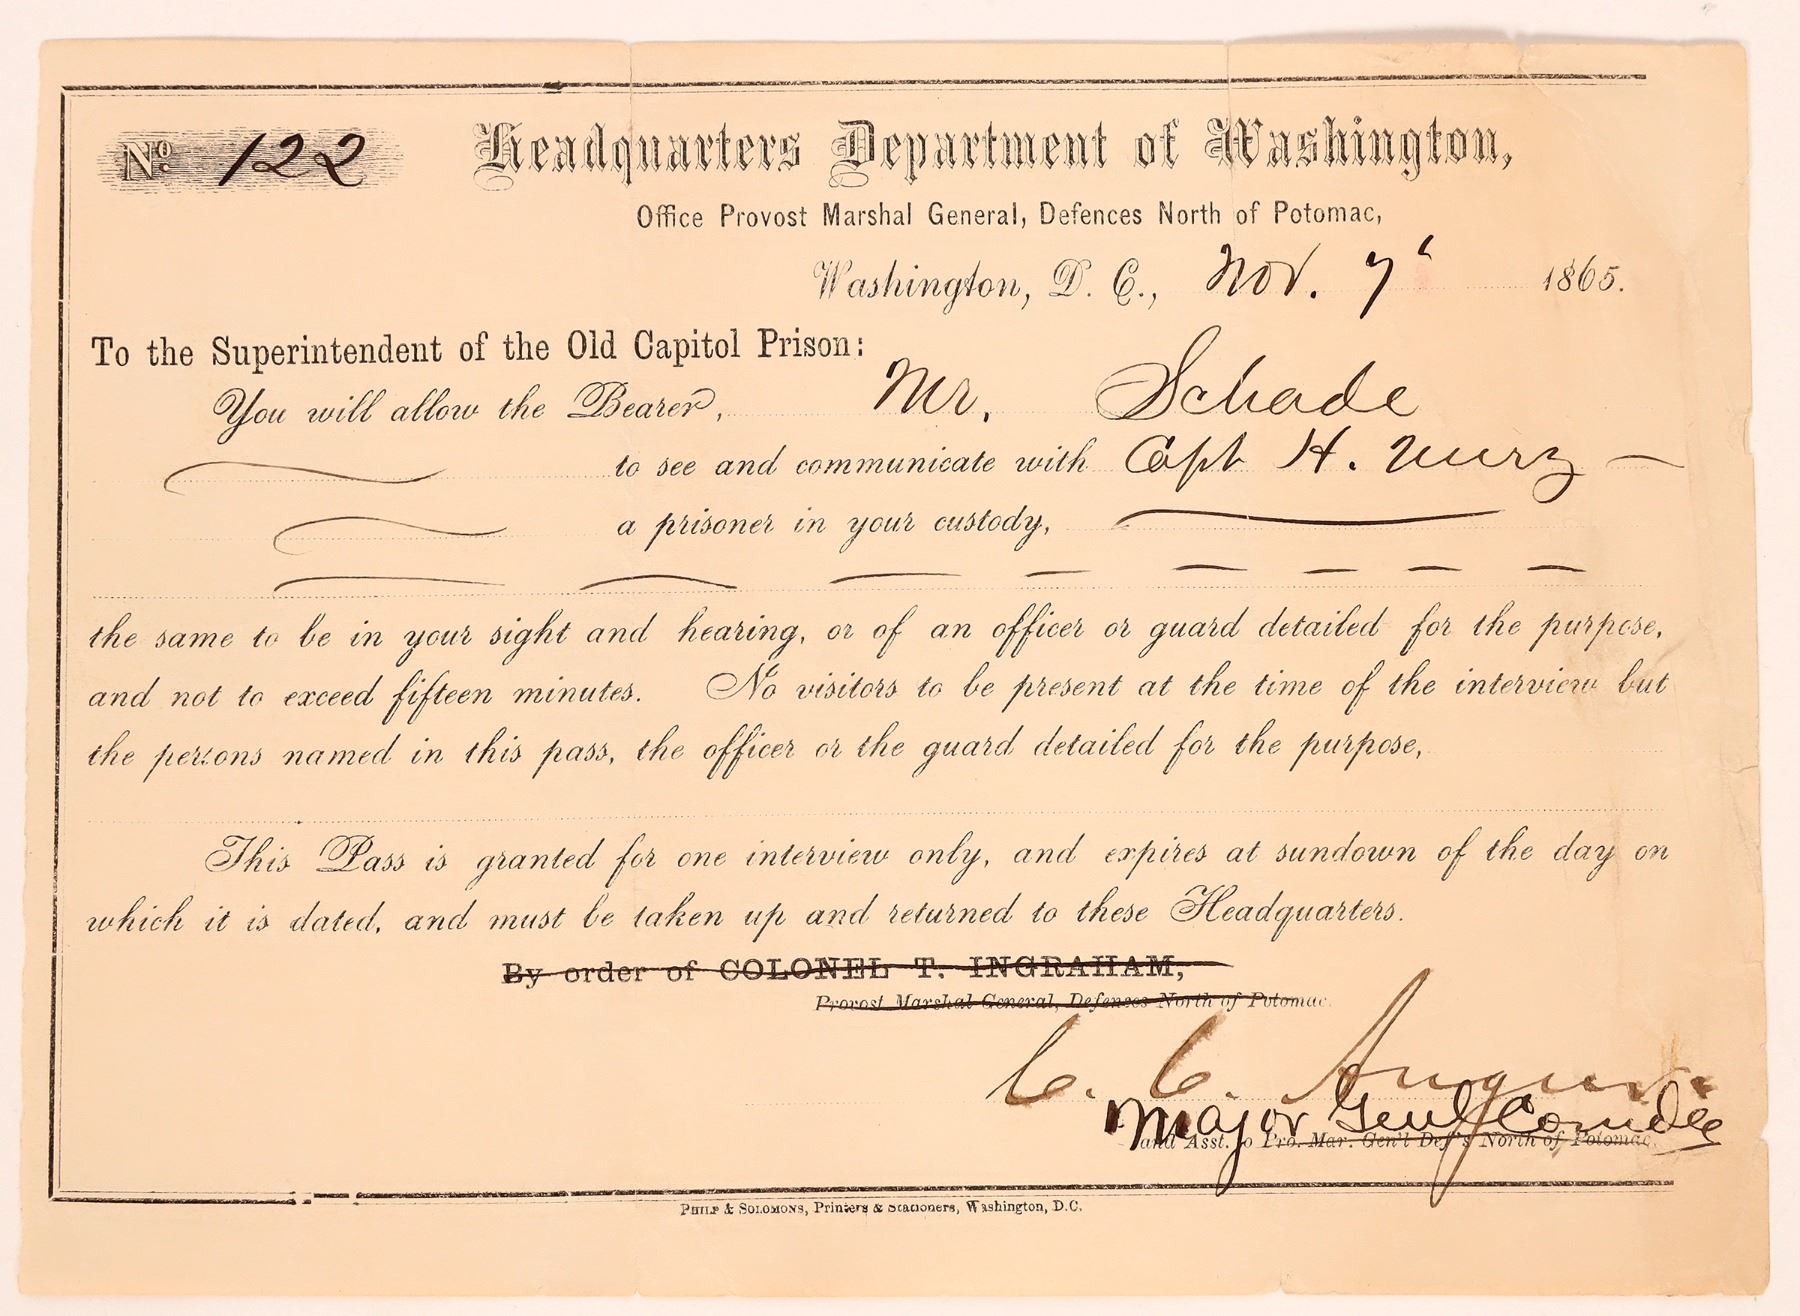 No. 122
Headquarters Department of Washington,
Office Provost Marshal General, Defences North of Potomac,
Washington, D. C., Nov. 7" 1865.
To the Superintendent of the Old Capitol Prison:
You will allow the Bearer, Mr. Schade
to see and communicate with Capt H. Wirz —
a prisoner in your custody,
the same to be in your sight and hearing, or of an officer or guard detailed for the purpose,
and not to exceed fifteen minutes. No visitors to be present at the time of the interview but
the persons named in this pass, the officer or the guard detailed for the purpose,
This Pass is granted for one interview only, and expires at sundown of the day on
which it is dated, and must be taken up and returned to these Headquarters.
By order of COLONEL T. INGRAHAM,
Provost Marshal General, Defences North of Potomac.
C. C. Augur
Major Genl Comdg
and Asst. to Pro. Mar. Gen'l Def's North of Potomac.
PHILP & SOLOMONS, Printers & Stationers, Washington, D.C.